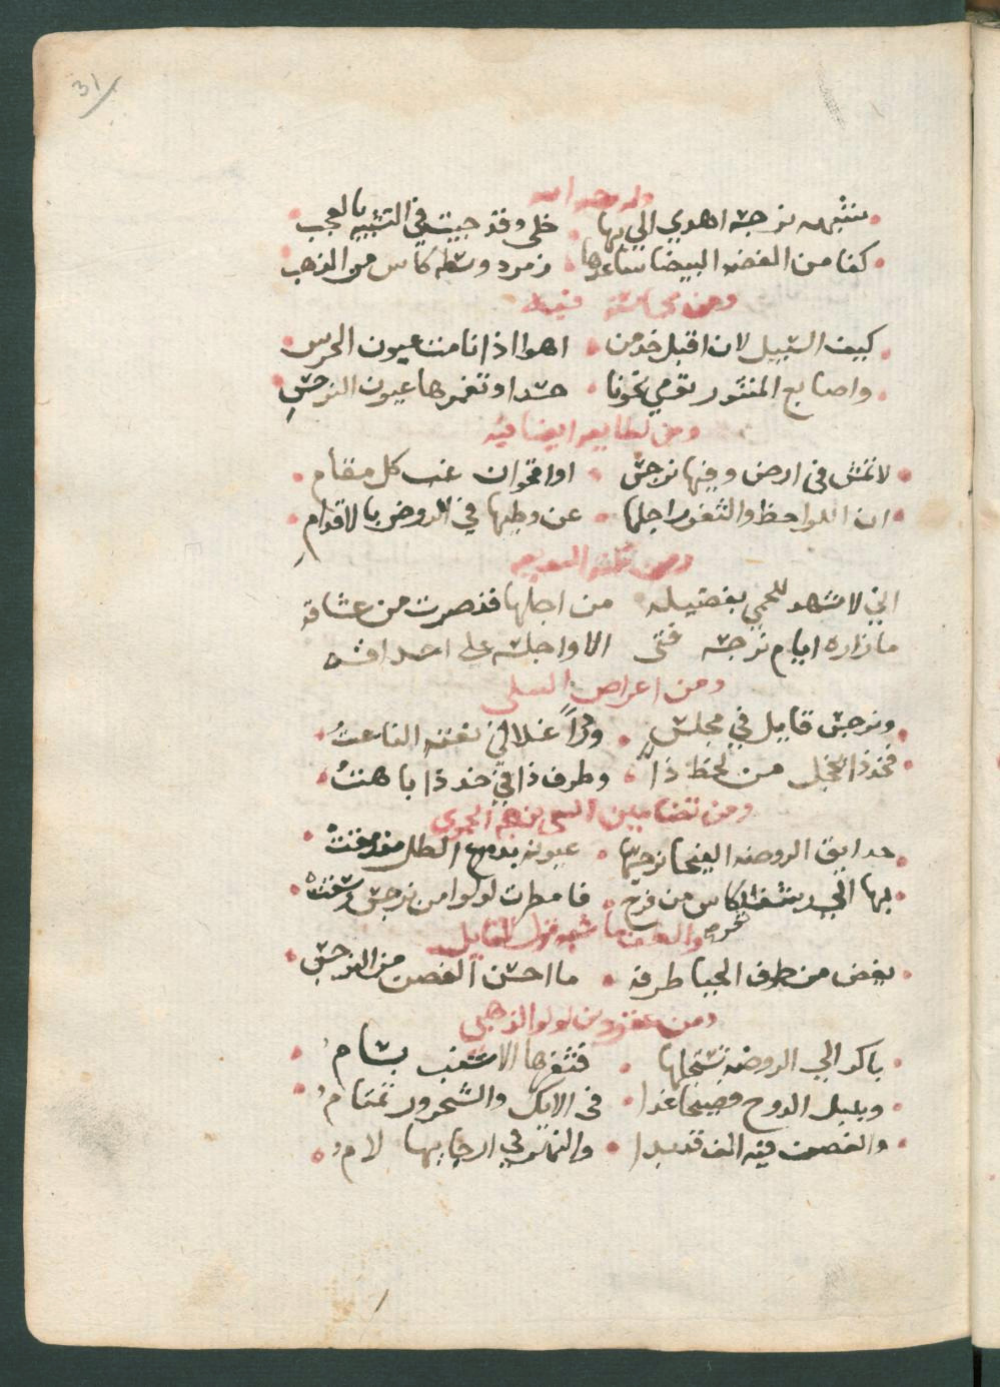 31
وله رحمه الله
تشبيهه نرجسة اهدي الي بها • خلي وقد جيت في التشبيه بالعجب
كفا من الفضه البيضا ساعدها • زمرد وسطه كاس من الذهب
ومن محاسنه فيه
كيف السبيل لان اقبل خد من • اهوا اذا نامت عيون الحرس
واصابع المنثور تومي نحونا • حسدا وتغمزها عيون النرجس
ومن لطايفه ايضا فيه
لا تمش في ارض وفيها نرجس • او اقحوان غب كل مقام
ان اللواحظ والثغور اجلها • عن وطيها في الروض بالاقدام
ومن البديع
اني لاشهد للحمي بفضيله • من اجلها قد صرت من عشاقه
ما زاره ايام نرجسه فتى الا واجلسه على احداقه
ومن اعراض
ونرجس قابل في مجلس • وردا غدا في نعته الناعت
فخد ذا يخجل من لحظ ذا • وطرف ذا في خد ذا باهت
ومن تضامين الحموي
حدايق الروضه الفيحا نرجسها • عيونه بدموع الطل
بها الي رشف الكاس من فرح • فامطرت لولوا من نرجس وسقت
نحوه قول القايل
يغض من طرف الحيا طرفه • ما احسن الغض من النرجس
ومن بن لولو الذهبي
باكر الي الروضة تستجلها • فثغرها الاشنب بسام
وبلبل الدوح فصيحا غدا • في الايك والشحرور تمتام
والغصن فيه الف قد بدا • والنهر في ارجايها لام